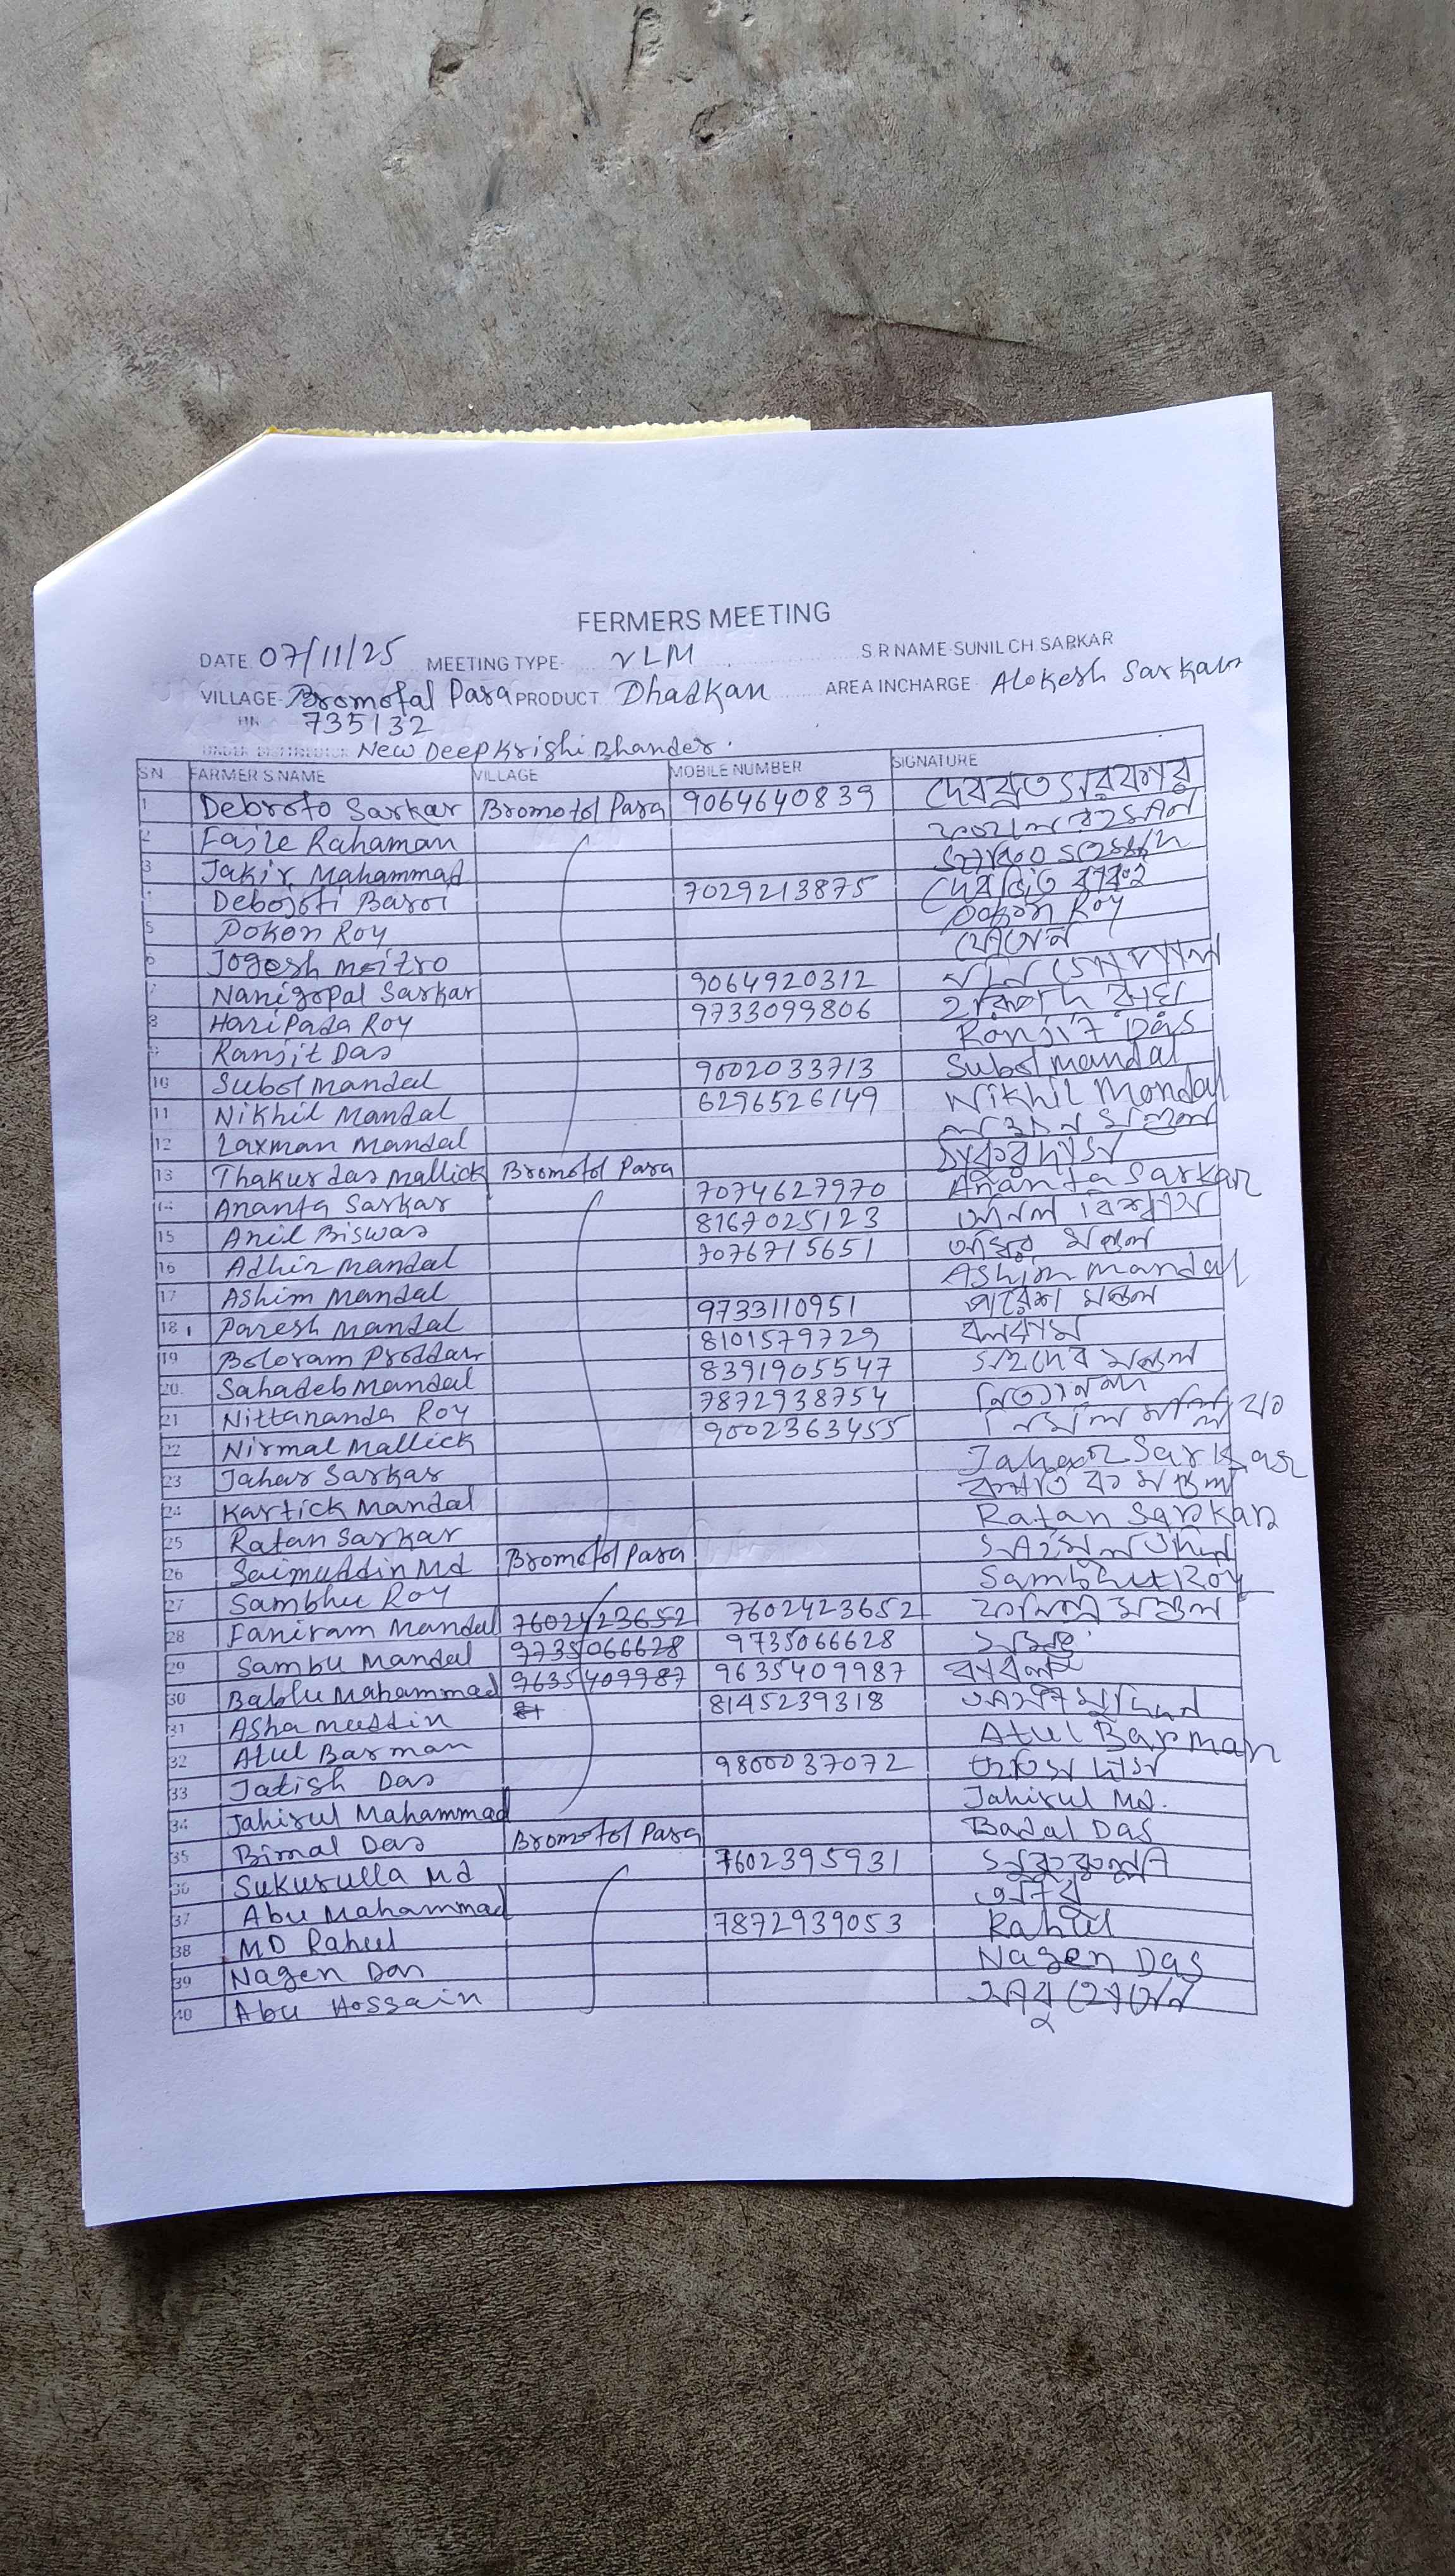 FERMERS MEETING
DATE 07/11/25 MEETING TYPE- VLM S R NAME-SUNIL CH SARKAR
VILLAGE- Bromotal Para PRODUCT Dhadkan AREA INCHARGE- Alokesh Sarkar
PIN 735132
UNDER DISTRIBUTOR New Deep Krishi Bhander.
SN FARMER S NAME VILLAGE MOBILE NUMBER SIGNATURE
1 Debroto Sarkar Bromotol Para 9064640839 দেবব্রত সরকার
2 Fajle Rahaman রহমান
3 Jakir Mahammad
4 Debojoti Baroi 7029213875 দেবজিত
5 Pokon Roy Pokon Roy
6 Jogesh Moitro যোগেন
7 Nanigopal Sarkar 9064920312
8 Haripada Roy 9733099806 হরিপদ রায়
9 Ranjit Das Ranjit Das
10 Subol Mandal 9002033713 Subol mandal
11 Nikhil Mandal 6296526149 Nikhil Mondal
12 Laxman Mandal মণ্ডল
13 Thakur das Mallick Bromotol Para ঠাকুরদাস
14 Ananta Sarkar 7074627970 Ananta Sarkar
15 Anil Biswas 8167025123 অনিল বিশ্বাস
16 Adhir Mandal 7076715651 অধির মণ্ডল
17 Ashim Mandal Ashim mandal
18 Paresh Mandal 9733110951 পরেশ মণ্ডল
19 Boloram Proddar 8101579729 বলরাম
20. Sahadeb Mandal 8391905547 সহদেব মণ্ডল
21 Nittananda Roy 7872938754 নিত্যানন্দ
22 Nirmal Mallick 9002363455 নির্মল
23 Jahar Sarkar Jahar Sarkar
24 Kartick Mandal মণ্ডল
25 Ratan Sarkar Ratan Sarkar
26 Saimuddin Md Bromotol Para
27 Sambhu Roy Sambhu Roy
28 Faniram Mandal 7602423652 7602423652 মণ্ডল
29 Sambu Mandal 9735066628 9735066628
30 Bablu Mahammad 9635409987 9635409987 বাবলু
31 Ashamuddin 81 8145239318
32 Atul Barman Atul Barman
33 Jatish Das 9800037072 দাস
34 Jahirul Mahammad Jahirul Md.
35 Bimal Das Bromotol Para Badal Das
36 Sukurulla Md 7602395931
37 Abu Mahammad
38 MD Rahul 7872939053 Rahul
39 Nagen Das Nagen Das
40 Abu Hossain আবু হোসেন